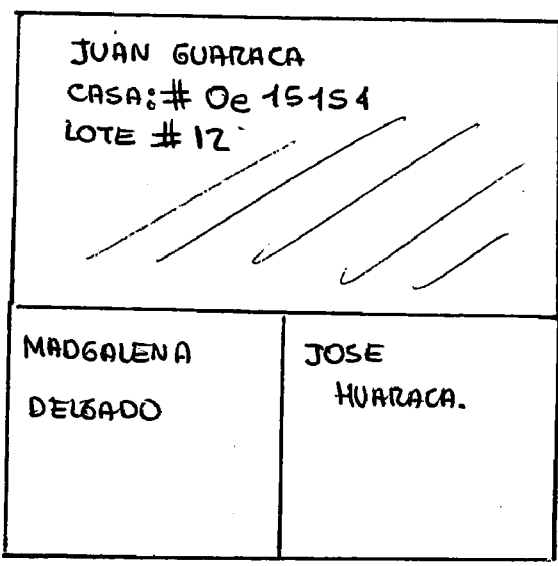 JUAN GUARACA
CASA: # Oe 15151
LOTE # 12
MADGALENA
DELGADO
JOSE
HUARACA.